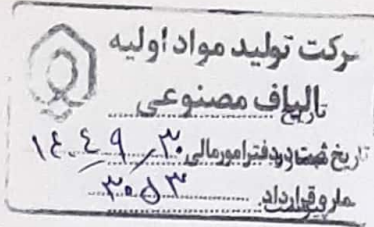 شرکت تولید مواد اولیه
الیاف مصنوعی
تاریخ
تاریخ ثبت در دفتر امور مالی ۱۴۰۴/۹/۳۰
قرارداد ۳۰۵۳